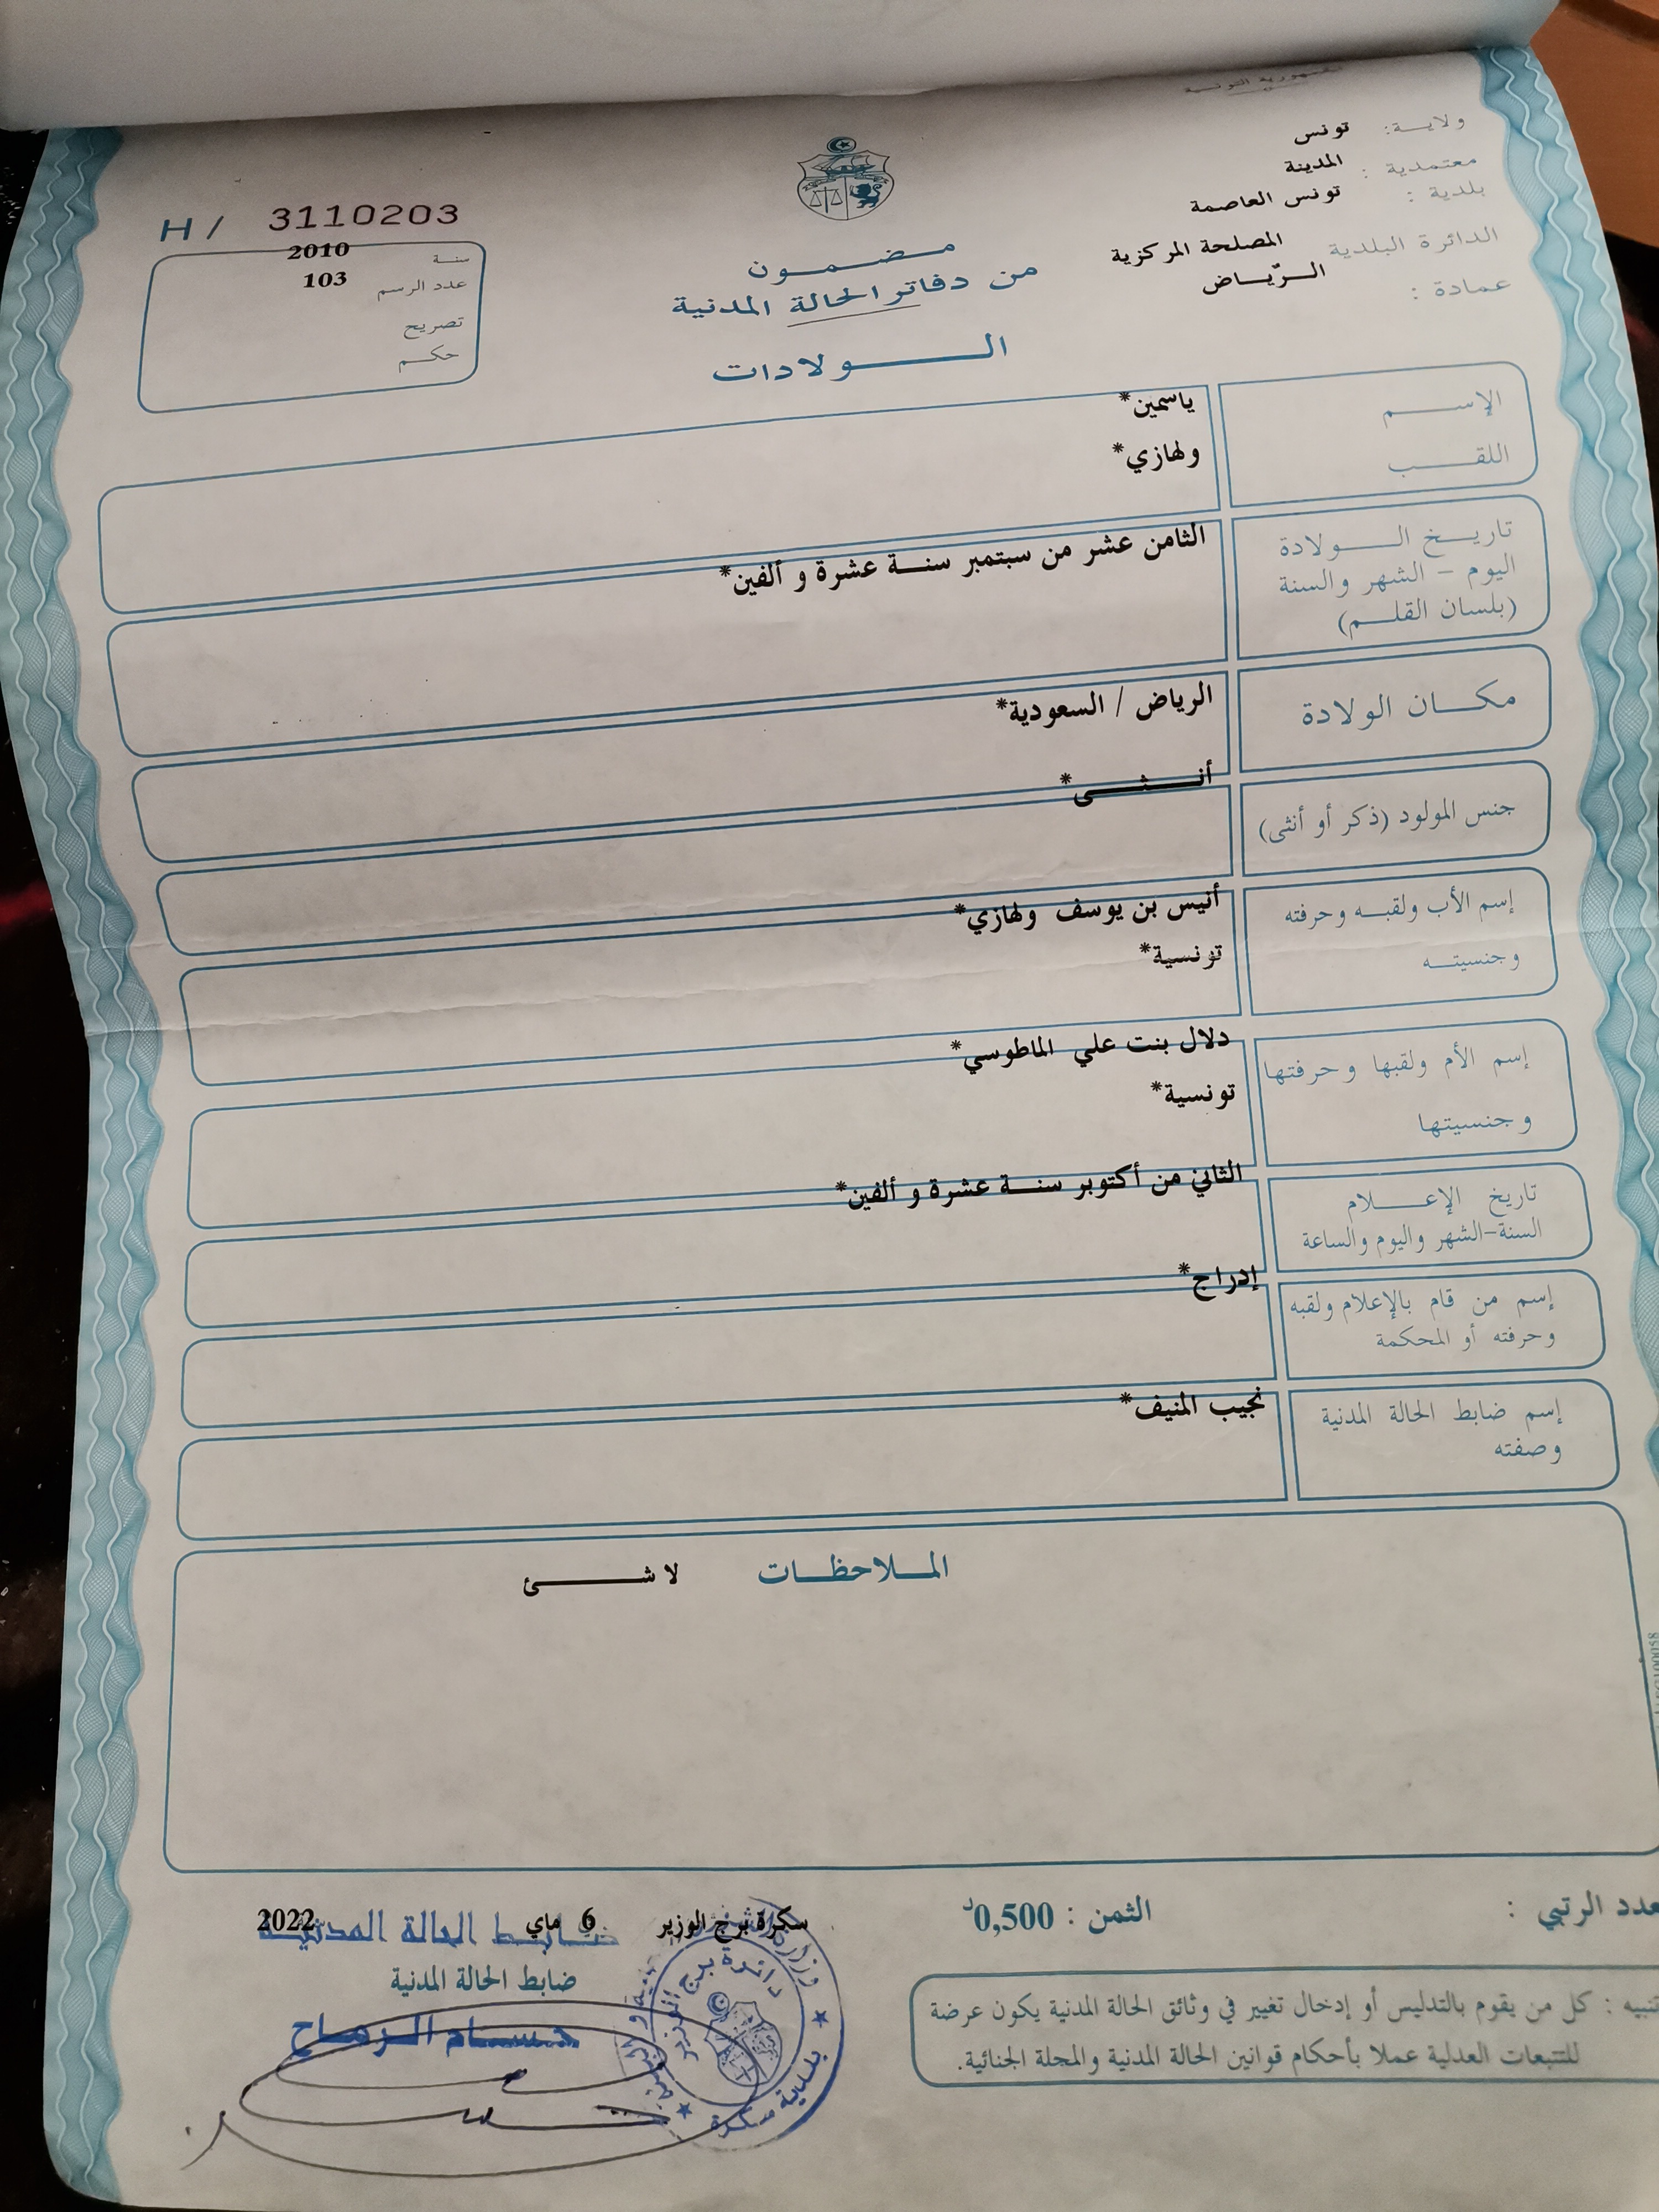 الجمهورية التونسية
ولاية: تونس
معتمدية : المدينة
بلدية : تونس العاصمة
الدائرة البلدية المصلحة المركزية
عمادة : الرّياض
H / 3110203
سنة 2010
عدد الرسم 103
تصريح
حكم
مضمون
من دفاتر الحالة المدنية
الولادات
الإسم ياسمين*
اللقب ولهازي*
تاريخ الولادة
اليوم - الشهر والسنة
(بلسان القلم)
الثامن عشر من سبتمبر سنة عشرة و ألفين*
مكان الولادة الرياض / السعودية*
جنس المولود (ذكر أو أنثى) أنثى*
إسم الأب ولقبه وحرفته أنيس بن يوسف ولهازي*
وجنسيته تونسية*
إسم الأم ولقبها وحرفتها دلال بنت علي الماطوسي*
وجنسيتها تونسية*
تاريخ الإعلام
السنة-الشهر واليوم والساعة
الثاني من أكتوبر سنة عشرة و ألفين*
إسم من قام بالإعلام ولقبه
وحرفته أو المحكمة
إدراج*
إسم ضابط الحالة المدنية
وصفته
نجيب المنيف*
الملاحظات لا شئ
عدد الرتبي :
الثمن : 0,500د
سكرة برج الوزير 6 ماي 2022
ضابط الحالة المدنية
ضابط الحالة المدنية
حسام الرماح
دائرة برج الوزير
بلدية سكرة
تنبيه : كل من يقوم بالتدليس أو إدخال تغيير في وثائق الحالة المدنية يكون عرضة
للتتبعات العدلية عملا بأحكام قوانين الحالة المدنية والمجلة الجنائية.